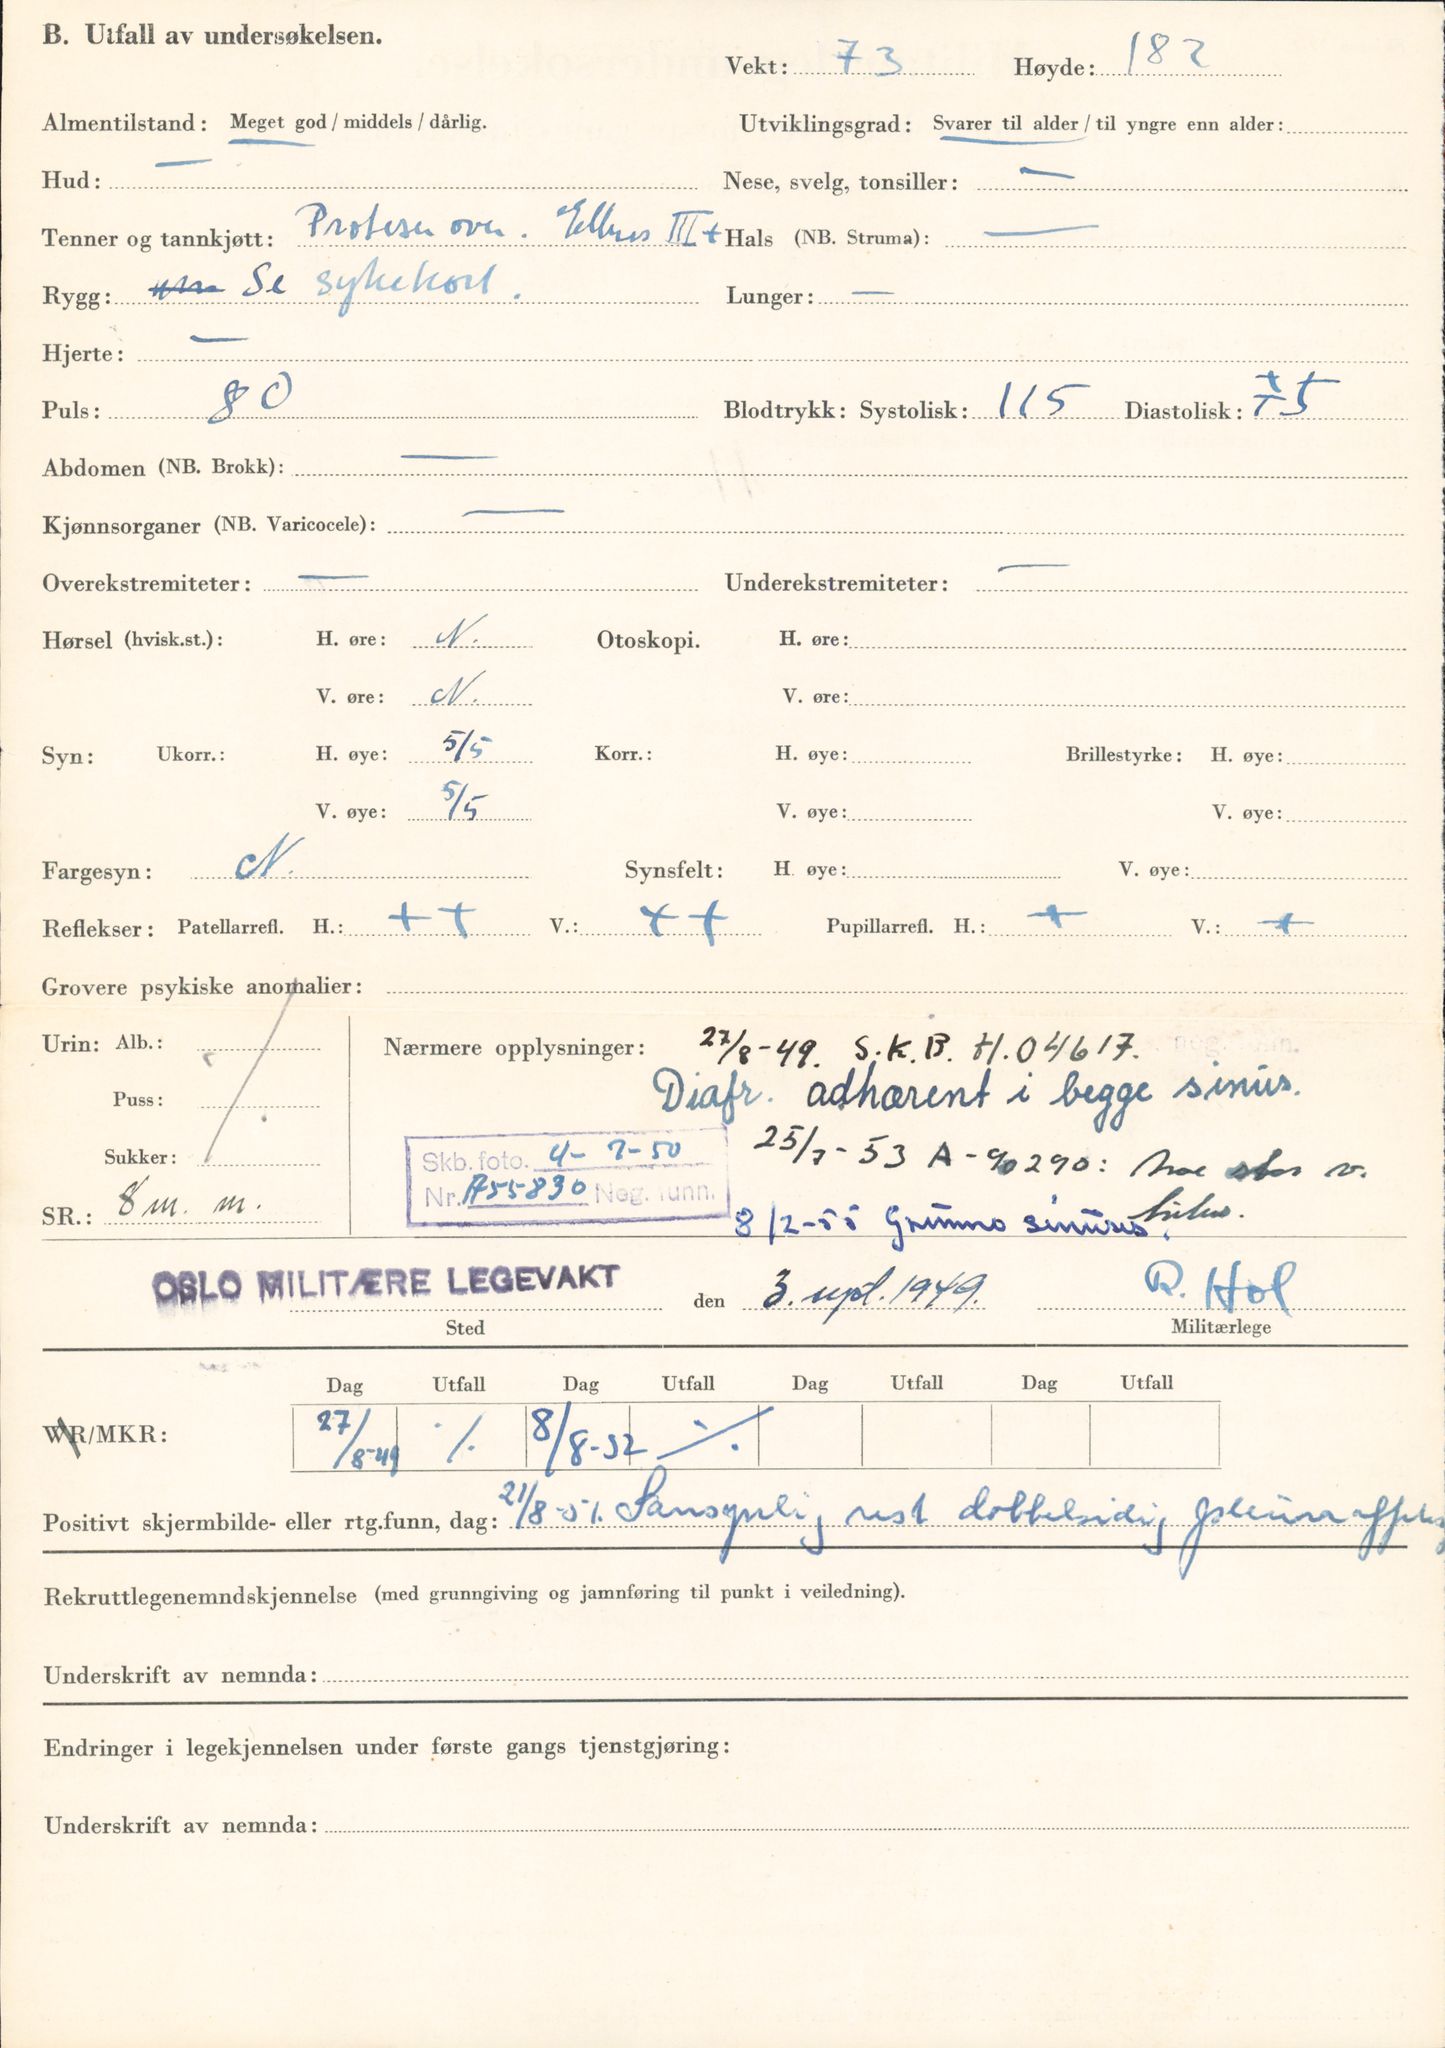 B. Utfall av undersøkelsen.
Vekt: 73 Høyde: 182
Almentilstand: Meget god / middels / dårlig. Utviklingsgrad: Svarer til alder / til yngre enn alder:
Hud: — Nese, svelg, tonsiller: —
Tenner og tannkjøtt: Proteser over. III + Hals (NB. Struma): —
Rygg: Se sykekort. Lunger: —
Hjerte: —
Puls: 80 Blodtrykk: Systolisk: 115 Diastolisk: 75
Abdomen (NB. Brokk): —
Kjønnsorganer (NB. Varicocele): —
Overekstremiteter: — Underekstremiteter: —
Hørsel (hvisk.st.): H. øre: N. Otoskopi. H. øre:
V. øre: N. V. øre:
Syn: Ukorr.: H. øye: 5/5 Korr.: H. øye: Brillestyrke: H. øye:
V. øye: 5/5 V. øye: V. øye:
Fargesyn: N. Synsfelt: H øye: V. øye:
Reflekser: Patellarrefl. H.: ++ V.: ++ Pupillarrefl. H.: + V.: +
Grovere psykiske anomalier:
Urin: Alb.: Nærmere opplysninger: 27/8-49. S.K.B. H.04617.
Diafr. adhærent i begge sinus.
Puss:
25/7-53 A-90290: noe v.
Sukker:
Skb. foto. 4-7-50
Nr. A55830 Neg. funn.
SR.: 8 m. m.
8/2-55 Grunne sinuses.
OSLO MILITÆRE LEGEVAKT den 3. sept. 1949. R. Hol
Sted Militærlege
Dag Utfall Dag Utfall Dag Utfall Dag Utfall
WR/MKR: 27/8-49 ./. 8/8-52 ./.
Positivt skjermbilde- eller rtg.funn, dag: 21/8-51. Sansynlig rest dobbelsidig pleura
Rekruttlegenemndskjennelse (med grunngiving og jamnføring til punkt i veiledning).
Underskrift av nemnda:
Endringer i legekjennelsen under første gangs tjenstgjøring:
Underskrift av nemnda: